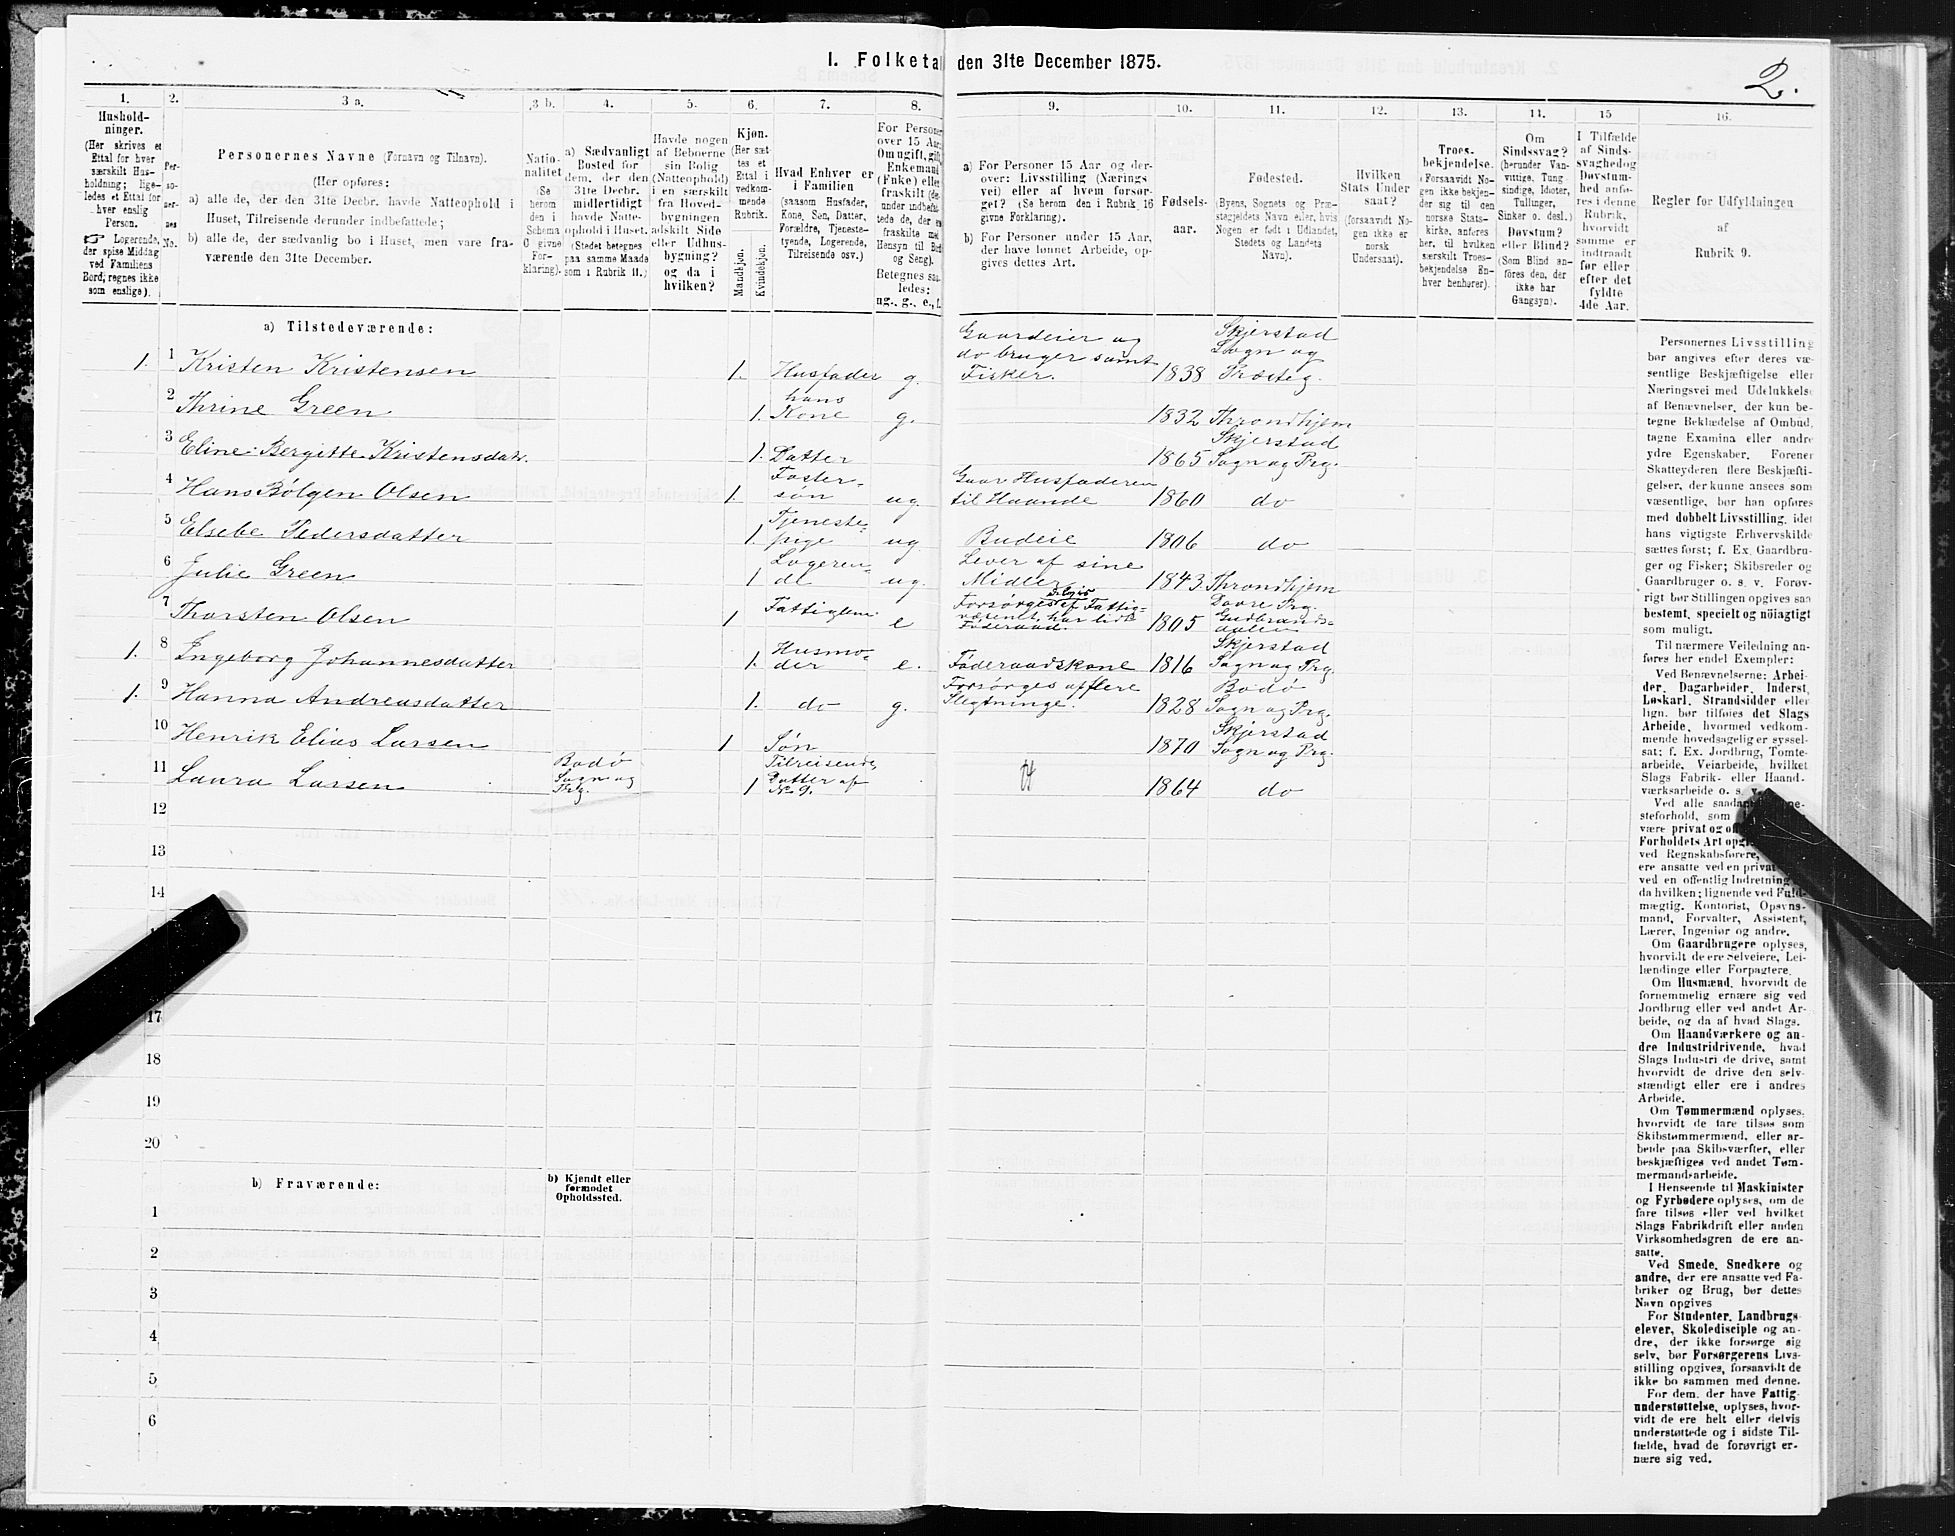 1. Folketal den 31te December 1875.
2.
1.
2.
3 a.
3 b.
4.
5.
6.
7.
8.
9.
10.
11.
12.
13.
14.
15
16.
Hushold-
ninger.
(Her skrives et
Ettal for hver
særskilt Hus-
holdning; lige-
ledes et Ettal for
hver enslig
Person.
☞ Logerende,
der spise Middag
ved Familiens
Bord, regnes ikke
som enslige).
Per-
so-
ner-
nes
No.
Personernes Navne (Fornavn og Tilnavn).
(Her opføres:
a) alle de, der den 31te Decbr. havde Natteophold i
Huset, Tilreisende derunder indbefattede;
b) alle de, der sædvanlig bo i Huset, men vare fra-
værende den 31te December.
Natio-
nalitet
(Se
herom
den i
Schema
C givne
For-
klaring).
a) Sædvanligt
Bosted for
dem, der den
31te Decbr.
midlertidigt
havde Natte-
ophold i Huset.
(Stedet betegnes
paa samme Maade
som i Rubrik 11.)
Havde nogen
af Beboerne
sin Bolig
(Natteophold)
i en særskilt
fra Hoved-
bygningen
adskilt Side
eller Udhus-
bygning?
og da i
hvilken?
Kjøn.
(Her sæt-
tes et
Ettal i
vedkom-
mende
Rubrik.
Mandkjøn.
Kvindekjøn.
Hvad Enhver er
i Familien
(saasom Husfader,
Kone, Søn, Datter,
Forældre, Tjeneste-
tyende, Logerende,
Tilreisende osv.)
For Personer
over 15 Aar:
Om ugift, gift,
Enkemand
(Enke) eller
fraskilt (de-
under indbefat-
tede de, der ere
fraskilte med
Hensyn til Bord
og Seng).
Betegnes saa-
ledes:
ug., g., e., f.
a) For Personer 15 Aar og der-
over: Livsstilling (Nærings-
vei) eller af hvem forsør-
get? (Se herom den i Rubrik 16
givne Forklaring).
b) For Personer under 15 Aar,
der have lønnet Arbeide, op-
gives dettes Art.
Fødsels-
aar.
Fødested.
(Byens, Sognets og Præ-
stegjeldets Navn eller, hvis
Nogen er født i Udlandet,
Stedets og Landets
Navn).
Hvilken
Stats Under
saat?
(forsaavidt No-
gen ikke er
norsk
Undersaat).
Troes-
bekjendelse.
(Forsaavidt No-
gen ikke bekjen-
der sig til den
norske Stats-
kirke, anføres
her, til hvilken
særskilt Troes-
bekjendelse En-
hver henhører).
Om
Sindssvag?
(herunder Van-
vittige, Tung-
sindige, Idioter,
Tullinger,
Sinker o. desl.)
Døvstum?
eller Blind?
(Som Blind an-
føres den, der
ikke har
Gangsyn).
I Tilfælde
af Sinds-
svaghed og
Døvstum-
hed anfø-
res i denne
Rubrik,
hvorvidt
samme er
indtraadt
før eller
efter det
fyldte
4de Aar.
Regler for Udfyldningen
af
Rubrik 9.
a) Tilstedeværende:
1. 1 Kristen Kristensen 1. Husfader g. Gaardeier og
do bruger samt
Fisker. 1838 Skjerstad
Sogn og
Præsteg.
2 Thrine Green 1. hans
Kone g. 1832 Throndhjem
3 Eline Bergitte Kristensdatr. 1. Datter 1865 Skjerstad
Sogn og Prg.
4 Hans Bölgen Olsen 1. Foster-
sön ug. Gaar Husfaderen
til Haande 1860 do
5 Elsebe Pedersdatter 1. Tjeneste-
pige ug Budeie 1806 do
6 Julie Green 1 Logeren-
de ug. Lever af sine
Midler 1843 Throndhjem
7 Thorsten Olsen 1 Fattiglem e Forsørges delvis af Fattig-
væsenet, har lidt
Föderaad. 1805 Dovre Prg.
Gudbrands-
dalen
1. 8 Ingeborg Johannesdatter 1. Husmo-
der e. Föderaadskone 1816 Skjerstad
Sogn og Prg.
1. 9 Hanna Andreasdatter 1. do g. Forsörges af flere
Slegtninge. 1828 Bodö
Sogn og Prg.
10 Henrik Elias Larsen 1 Sön 1870 Skjerstad
Sogn og Prg.
11 Laura Larsen Bodö
Sogn og
Prg. 1 Tilreisende,
Datter af
No 9. 1864 do
12
13
14
17
18
19
20
b) Fraværende:
b) Kjendt eller
formodet
Opholdssted.
1
2
3
4
5
6
Personernes Livsstilling
bør angives efter deres væ-
sentlige Beskjæftigelse eller
Næringsvei med Udelukkelse
af Benævnelser, der kun be-
tegne Beklædelse af Ombud,
tagne Examina eller andre
ydre Egenskaber. Forener
Skatteyderen flere Beskjæfti-
gelser, der kunne ansees som
væsentlige, bør han opføres
med dobbelt Livsstilling, idet
hans vigtigste Erhvervskilde
sættes først; f. Ex. Gaardbru-
ger og Fisker; Skibsreder og
Gaardbruger o. s. v. Forøv-
rigt bør Stillingen opgives saa
bestemt, specielt og nøiagtigt
som muligt.
Til nærmere Veiledning an-
føres her endel Exempler:
Ved Benævnelserne: Arbei-
der, Dagarbeider, Inderst,
Løskarl, Strandsidder eller
lign. bør tilføies det Slags
Arbeide, hvormed vedkom-
mende hovedsagelig er syssel-
sat; f. Ex. Jordbrug, Tomte-
arbeide, Veiarbeide, hvilket
Slags Fabrik- eller Haand-
værksarbeide o. s. v.
Ved alle saadanne
steforhold, som
være privat og
Forholdets Art
ved Regnskabsførere,
ere ansatte ved en privat
ved en offentlig Indretning
da hvilken; lignende ved Fuld-
mægtig, Kontorist, Opsyns-
mand, Forvalter, Assistent,
Lærer, Ingeniør og andre.
Om Gaardbrugere oplyses,
hvorvidt de ere Selveiere, Lei-
lændinge eller Forpagtere.
Om Husmænd, hvorvidt de
fornemmelig ernære sig ved
Jordbrug eller ved andet Ar-
beide, og da af hvad Slags.
Om Haandværkere og an-
dre Industridrivende, hvad
Slags Industri de drive, samt
hvorvidt de drive den selv-
stændigt eller ere i andres
Arbeide.
Om Tømmermænd oplyses,
hvorvidt de fare tilsøs som
Skibstømmermænd, eller ar-
beide paa Skibsværfter, eller
beskjæftiges ved andet Tøm-
mermandsarbeide.
I Henseende til Maskinister
og Fyrbødere oplyses, om de
fare tilsøs eller ved hvilket
Slags Fabrikdrift eller anden
Virksomhedsgren de ere an-
satte.
Ved Smede, Snedkere og
andre, der ere ansatte ved Fa-
briker og Brug, bør dettes
Navn opgives
For Studenter, Landbrugs-
elever, Skoledisciple og an-
dre, der ikke forsørge sig
selv, bør Forsørgerens Livs-
stilling opgives, forsaavidt de
ikke bo sammen med denne.
For dem, der have Fattig-
understøttelse, oplyses, hvor-
vidt de ere helt eller delvis
understøttede og i sidste Til-
fælde, hvad de forøvrigt er-
nære sig ved.